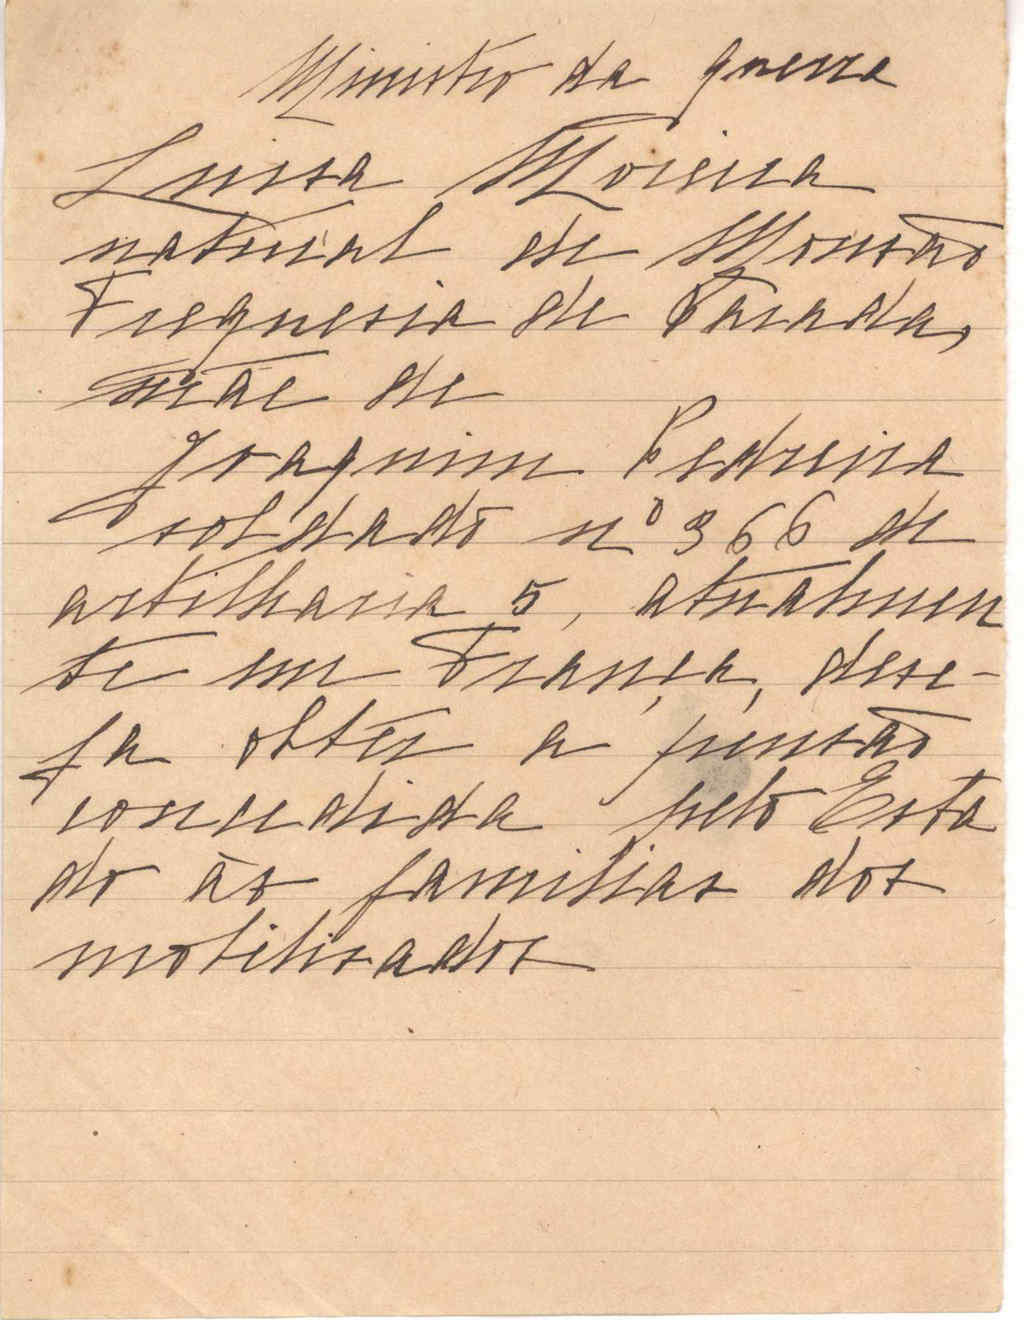 Ministro da guerra
Luisa Moreira
natural de Monsão
Freguesia de Parada,
mãe de
Joaquim Pedreira
soldado nº 366 de
artilharia 5, atualmen
te em França, dese-
ja obter a pensão
concedida pelo Esta
do ás familias dos
mobilisados